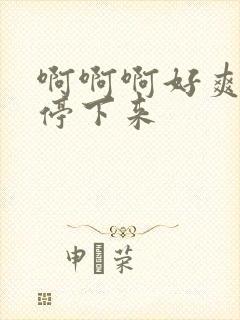 啊啊啊好爽
停下来
申·荣